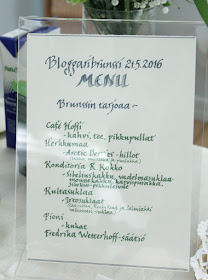 Bloggaribrunssi 21.5.2016
MENU
Brunssin tarjoaa:~
Café Hoffi
-kahvi, tee, pikkupullat
Herkkumaa
-Arctic Berries -hillot
Konditoria R. Kokko
-Sibeliuskakku, vadelmasuklaa-
moussekakku, karpalopiirakka,
Sibelius-pikkuleivät
Kultasuklaa
-Irtosuklaat
Pioni
-kukat
Fredrika Wetterhoff-säätiö